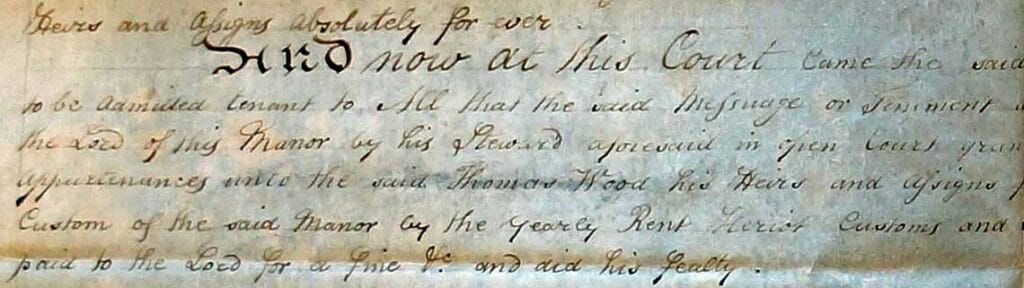 Heirs and Assigns absolutely for ever.
And now at this Court came the said
to be admitted tenant to All that the said Messuage or Tenement
the Lord of this Manor by his Steward aforesaid in open Court gran
appurtenances unto the said Thomas Wood his Heirs and Assigns
Custom of the said Manor by the Yearly Rent Heriot Customs and
paid to the Lord for a fine &c and did his fealty.